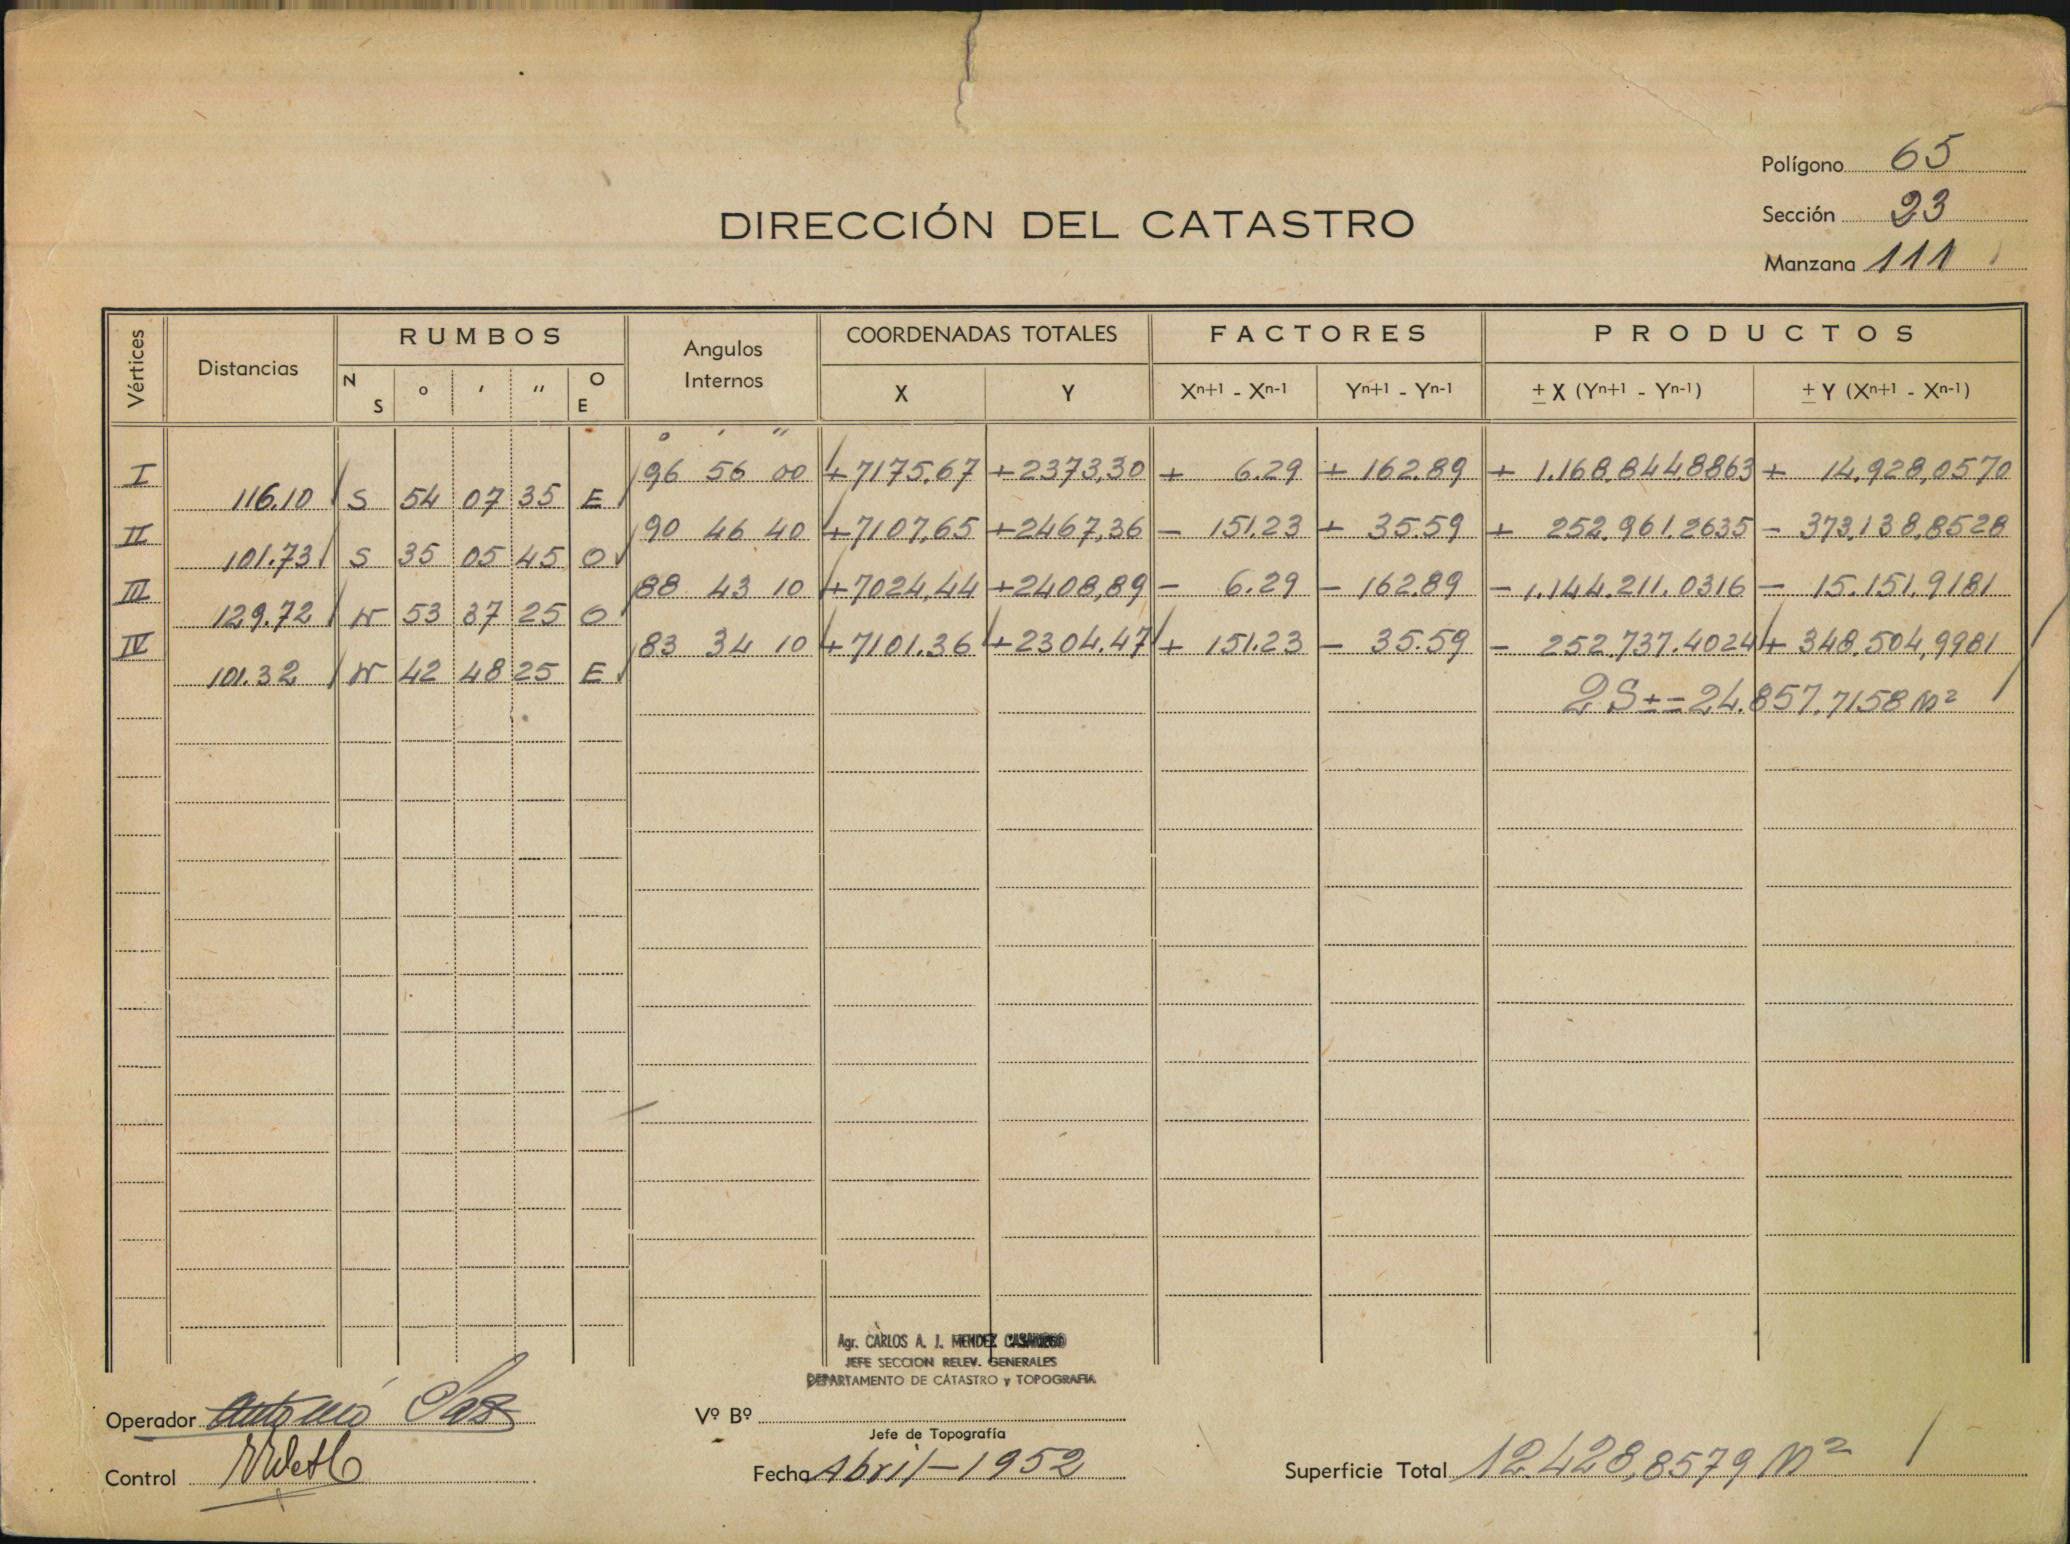 Polígono 65
Sección 23
Manzana 111
DIRECCIÓN DEL CATASTRO
Vértices Distancias RUMBOS Angulos Internos COORDENADAS TOTALES FACTORES PRODUCTOS
N S ° ' " O E X Y Xn+1 - Xn-1 Yn+1 - Yn-1 ± X (Yn+1 - Yn-1) ± Y (Xn+1 - Xn-1)
° ' "
I 96 56 00 +7175,67 +2373,30 + 6.29 + 162.89 + 1.168.844.8863 + 14.928,0570
116.10 S 54 07 35 E
II 90 46 40 +7107,65 +2467,36 - 151.23 + 35.59 + 252.961.2635 - 373.138,8528
101.73 S 35 05 45 O
III 88 43 10 +7024,44 +2408,89 - 6.29 - 162.89 - 1.144.211.0316 - 15.151.9181
129.72 N 53 37 25 O
IV 83 34 10 +7101.36 +2304.47 + 151.23 - 35.59 - 252.737.4024 + 348.504,9981
101.32 N 42 48 25 E
2S ± = 24.857,7158 m²
Agr. CARLOS A. J. MENDEZ
JEFE SECCION RELEV. GENERALES
DEPARTAMENTO DE CATASTRO y TOPOGRAFIA
Operador Antonio
Vº Bº
Jefe de Topografía
Control
Fecha Abril-1952
Superficie Total 12.428,8579 m²